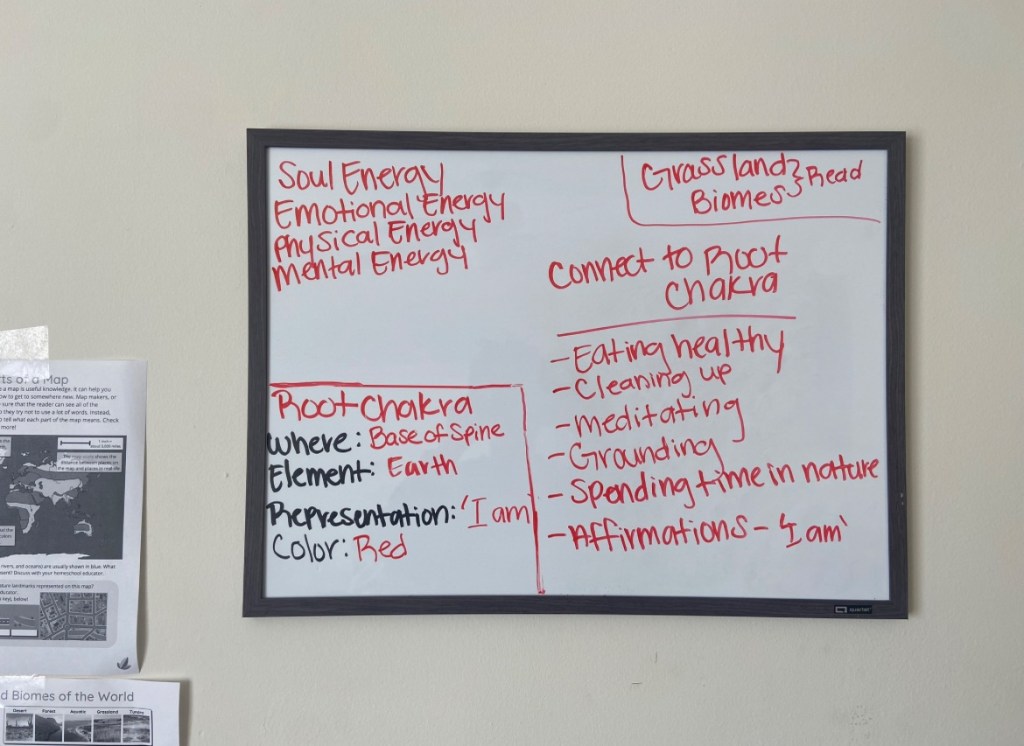 Soul Energy
Emotional Energy
Physical Energy
Mental Energy
Grassland
Biomes
Read
Connect to Root
Chakra
- Eating healthy
- Cleaning up
- Meditating
- Grounding
- Spending time in nature
- Affirmations - 'I am'
Root Chakra
Where: Base of Spine
Element: Earth
Representation: 'I am
Color: Red
QUARTET
rts of a Map
a map is useful knowledge. It can help you
ow to get to somewhere new. Map makers, or
sure that the reader can see all of the
they try not to use a lot of words. Instead,
to tell what each part of the map means. Check
more!
The map scale shows the
distance between places on
the map and places in real life
rivers, and oceans) are usually shown in blue. What
Discuss with your homeschool educator.
landmarks represented on the map?
educator.
key), below!
d Biomes of the World
Desert Forest Aquatic Grassland Tundra